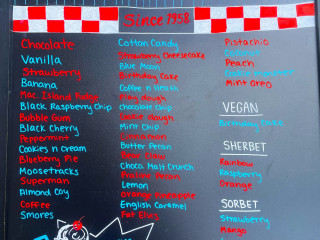 Since 1958
Chocolate
Vanilla
Strawberry
Banana
Mac. Island Fudge
Black Raspberry Chip
Bubble Gum
Black Cherry
Peppermint
Cookies n Cream
Blueberry Pie
Moosetracks
Superman
Almond Coy
Coffee
Smores
Cotton Candy
Strawberry Cheesecake
Blue Moon
Birthday Cake
Coffee n Heath
Play dough
Chocolate Chip
Cookie dough
Mint Chip
Butter Pecan
Choc. Malt Crunch
Praline Pecan
Lemon
Orange Pineapple
English Caramel
Fat Elvis
Pistachio
Peach
Mint Oreo
VEGAN
Birthday
SHERBET
Rainbow
Raspberry
Orange
SORBET
Strawberry
Mango